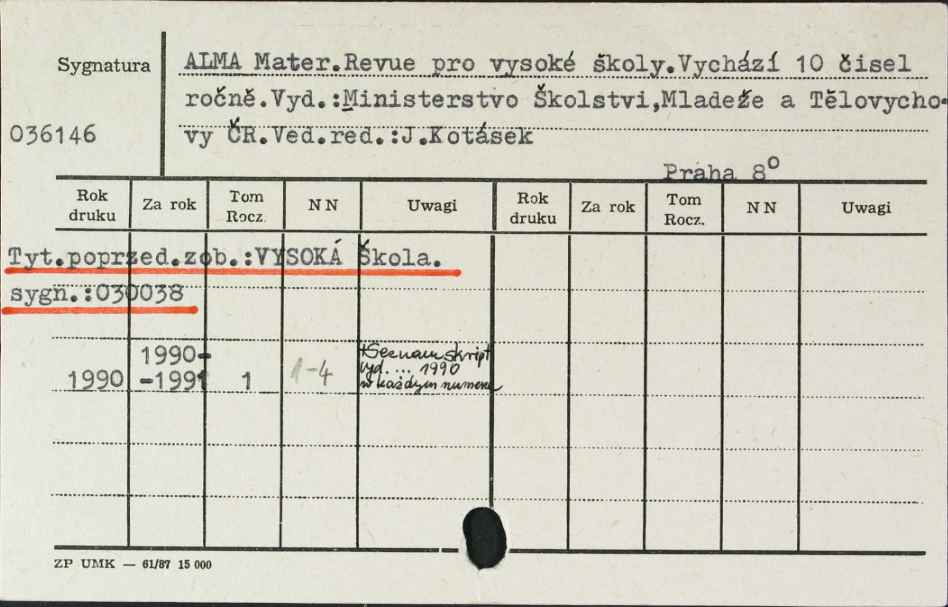 Sygnatura
ALMA Mater.Revue pro vysoké školy.Vychází 10 čisel
ročně.Vyd.:Ministerstvo Školstvi,Mladeže a Tělovycho-
036146
vy ČR.Ved.red.:J.Kotásek
Praha 8º
Rok druku Za rok Tom Rocz. NN Uwagi Rok druku Za rok Tom Rocz. NN Uwagi
Tyt.poprzed.zob.:VYSOKÁ Škola.
sygn.:030038
1990-
1990 -1991 1 1-4
+Seznam skript
vyd. ... 1990
w każdym numerze
ZP UMK — 61/87 15 000